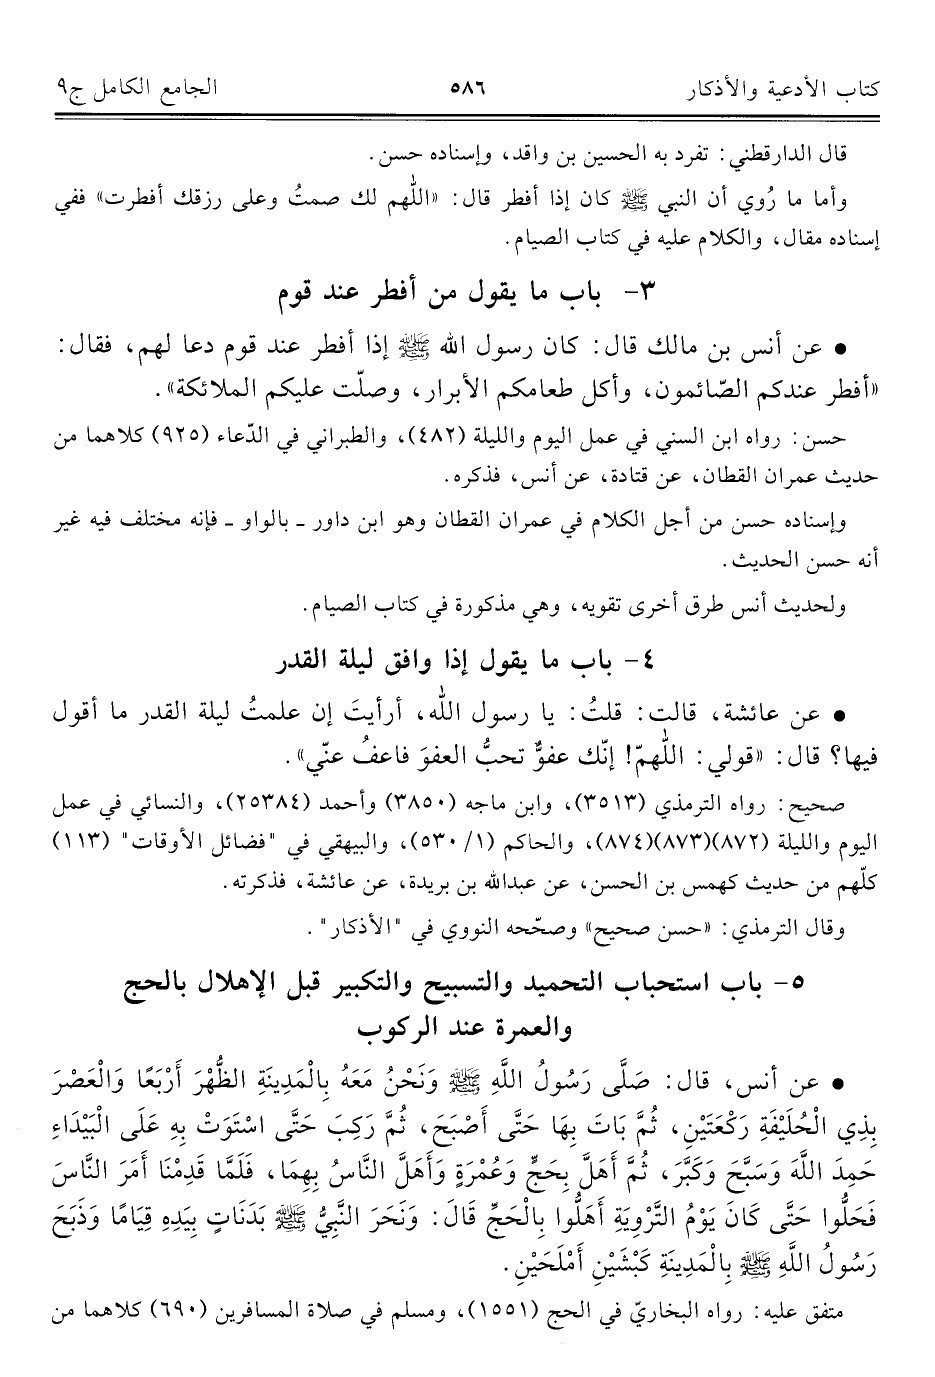 كتاب الأدعية والأذكار ٥٨٦ الجامع الكامل ج٩
قال الدارقطني: تفرد به الحسين بن واقد، وإسناده حسن.
وأما ما رُوي أن النبي ﷺ كان إذا أفطر قال: «اللّٰهم لك صمتُ وعلى رزقك أفطرت» ففي
إسناده مقال، والكلام عليه في كتاب الصيام.
٣- باب ما يقول من أفطر عند قوم
● عن أنس بن مالك قال: كان رسول الله ﷺ إذا أفطر عند قوم دعا لهم، فقال:
«أفطر عندكم الصّائمون، وأكل طعامكم الأبرار، وصلّت عليكم الملائكة».
حسن: رواه ابن السني في عمل اليوم والليلة (٤٨٢)، والطبراني في الدّعاء (٩٢٥) كلاهما من
حديث عمران القطان، عن قتادة، عن أنس، فذكره.
وإسناده حسن من أجل الكلام في عمران القطان وهو ابن داور ـ بالواو ـ فإنه مختلف فيه غير
أنه حسن الحديث.
ولحديث أنس طرق أخرى تقويه، وهي مذكورة في كتاب الصيام.
٤- باب ما يقول إذا وافق ليلة القدر
● عن عائشة، قالت: قلتُ: يا رسول اللّٰه، أرأيتَ إن علمتُ ليلة القدر ما أقول
فيها؟ قال: «قولي: اللّٰهمّ! إنّك عفوٌّ تحبُّ العفوَ فاعفُ عنّي».
صحيح: رواه الترمذي (٣٥١٣)، وابن ماجه (٣٨٥٠) وأحمد (٢٥٣٨٤)، والنسائي في عمل
اليوم والليلة (٨٧٢)(٨٧٣)(٨٧٤)، والحاكم (١/ ٥٣٠)، والبيهقي في "فضائل الأوقات" (١١٣)
كلّهم من حديث كهمس بن الحسن، عن عبدالله بن بريدة، عن عائشة، فذكرته.
وقال الترمذي: «حسن صحيح» وصحّحه النووي في "الأذكار".
٥- باب استحباب التحميد والتسبيح والتكبير قبل الإهلال بالحج
والعمرة عند الركوب
● عن أنس، قال: صَلَّى رَسُولُ اللَّهِ ﷺ وَنَحْنُ مَعَهُ بِالْمَدِينَةِ الظُّهْرَ أَرْبَعًا وَالْعَصْرَ
بِذِي الْحُلَيْفَةِ رَكْعَتَيْنِ، ثُمَّ بَاتَ بِهَا حَتَّى أَصْبَحَ، ثُمَّ رَكِبَ حَتَّى اسْتَوَتْ بِهِ عَلَى الْبَيْدَاءِ
حَمِدَ اللَّهَ وَسَبَّحَ وَكَبَّرَ، ثُمَّ أَهَلَّ بِحَجٍّ وَعُمْرَةٍ وَأَهَلَّ النَّاسُ بِهِمَا، فَلَمَّا قَدِمْنَا أَمَرَ النَّاسَ
فَحَلُّوا حَتَّى كَانَ يَوْمُ التَّرْوِيَةِ أَهَلُّوا بِالْحَجِّ قَالَ: وَنَحَرَ النَّبِيُّ ﷺ بَدَنَاتٍ بِيَدِهِ قِيَامًا وَذَبَحَ
رَسُولُ اللَّهِ ﷺ بِالْمَدِينَةِ كَبْشَيْنِ أَمْلَحَيْنِ.
متفق عليه: رواه البخاريّ في الحج (١٥٥١)، ومسلم في صلاة المسافرين (٦٩٠) كلاهما من